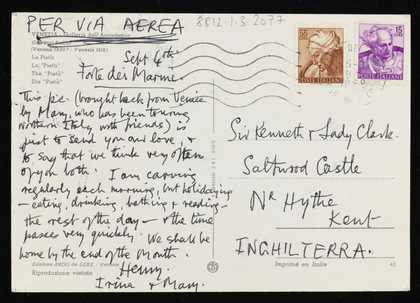 PER VIA AEREA
8812.1.3.2077
VENEZIA - Galleria dell'Accademia
(Venezia 1430 - Venezia 1516)
La Pietà
La Pietà
The "Pietà"
Die "Pietà"
Sept 4th
Forte dei Marmi.
This pic- (brought back from Venice
by Mary, who has been touring
northern Italy with friends) is
just to send you our love, &
to say that we think very often
of you both. I am carving
regularly each morning, but holidaying
- eating, drinking, bathing & reading -
the rest of the day - & the time
passes very quickly. We shall be
home by the end of the Month.
Henry,
Irina & Mary.
Riproduzione vietata
POSTE ITALIANE
15
POSTE ITALIANE
Sir Kenneth & Lady Clark.
Saltwood Castle
Nr Hythe
Kent
INGHILTERRA.
Imprimé en Italie